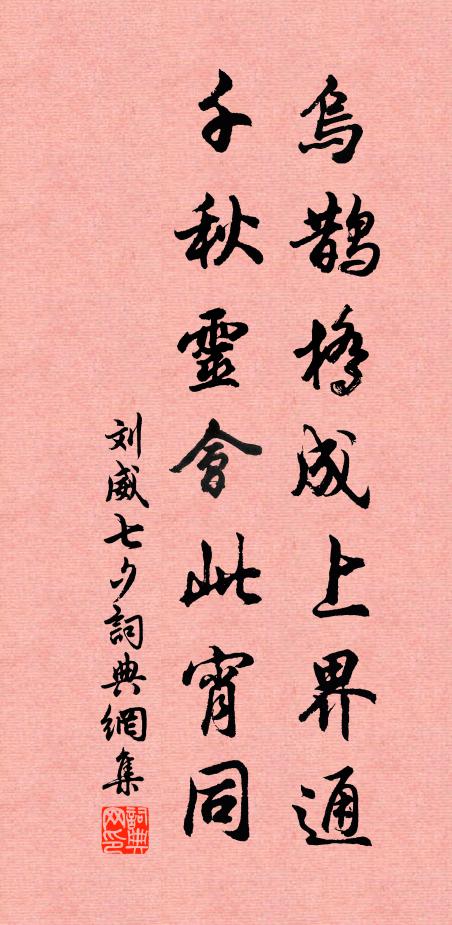 烏鵲橋成上界通
千秋靈會此宵同
刘威七夕詞典網集
詞典网印